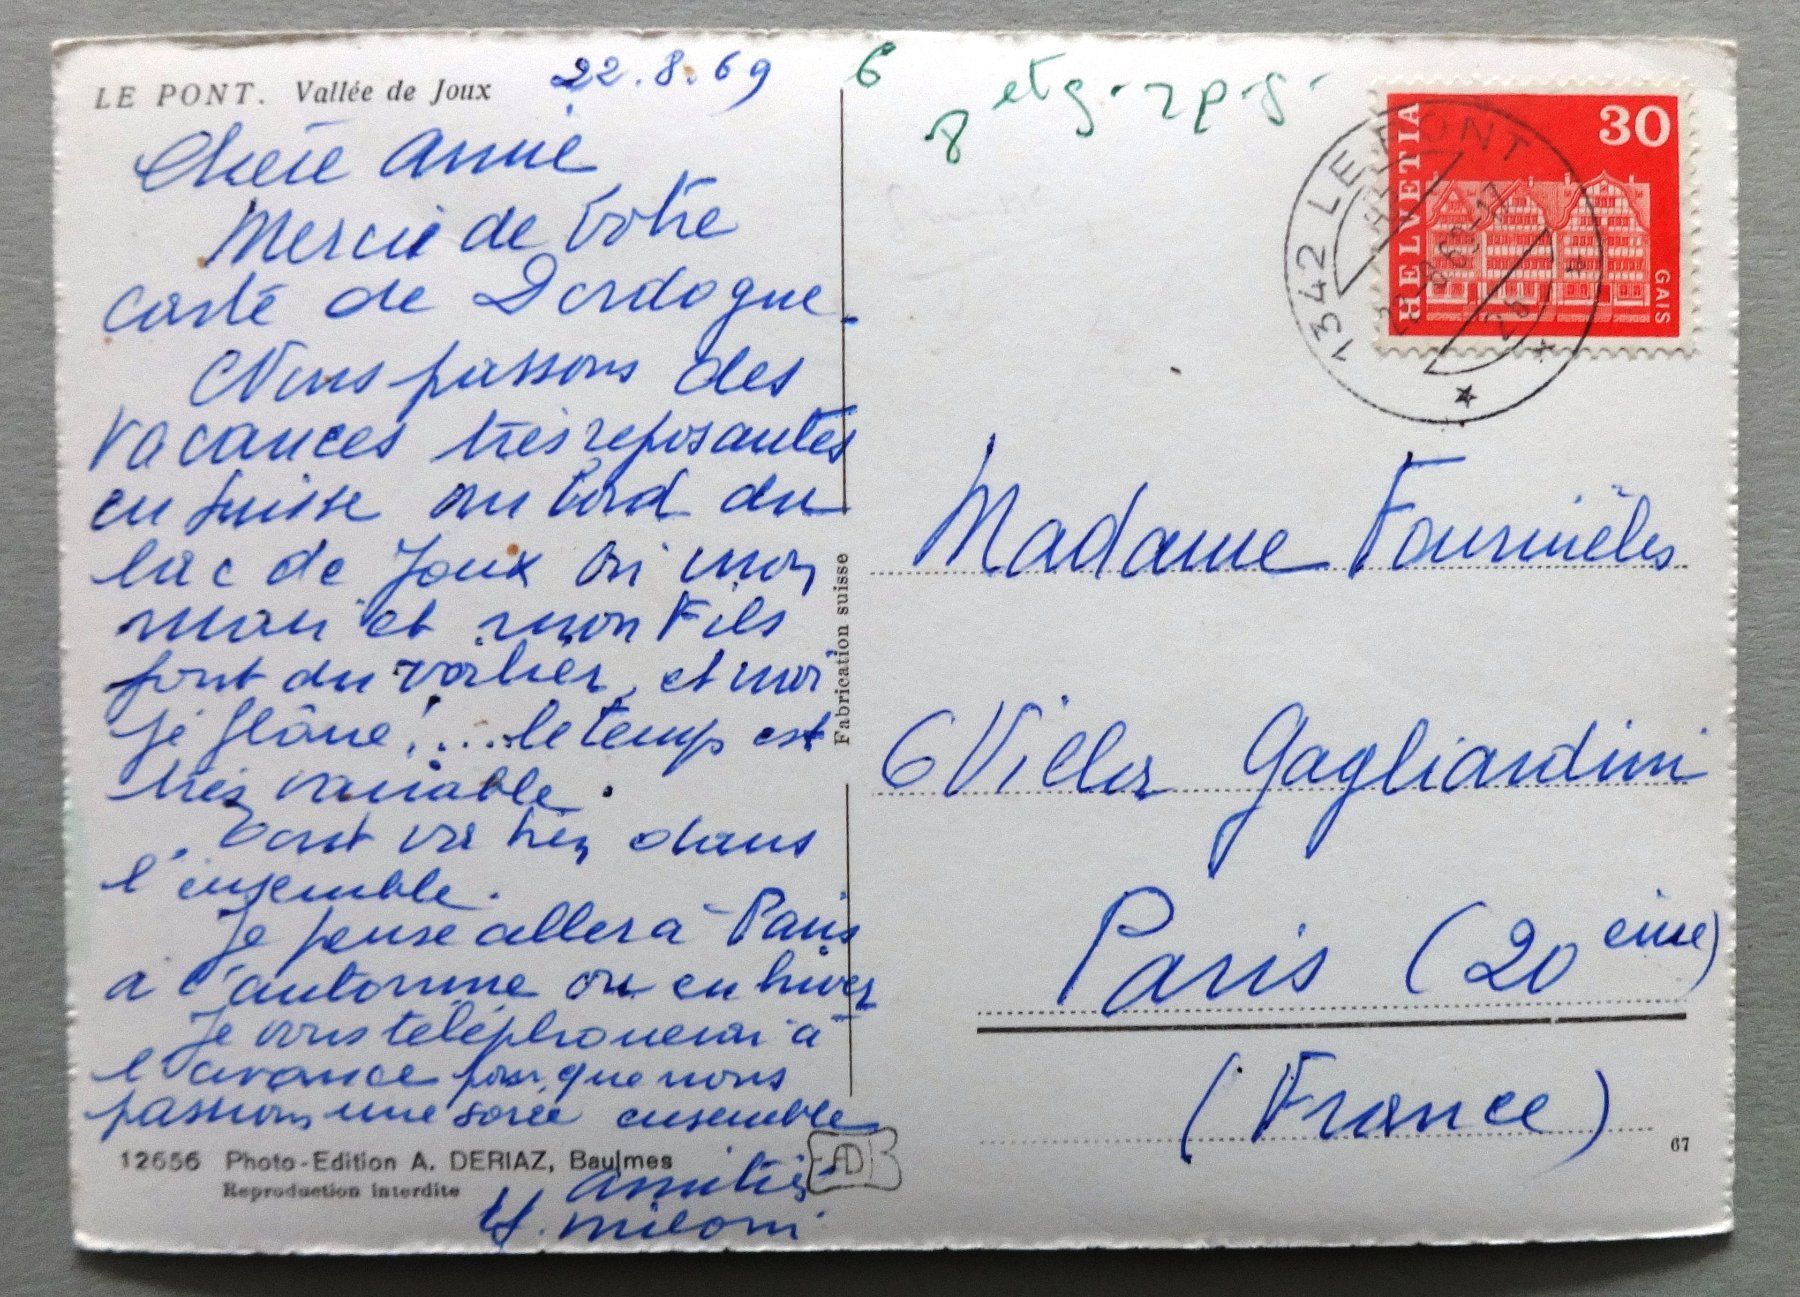 LE PONT. Vallée de Joux
22.8.69
Chère Annie
Merci de votre
carte de Dordogne.
Nous passons des
vacances très reposantes
en Suisse au bord du
lac de Joux où mon
mari et mon Fils
font du voilier, et moi
je flâne!....le temps est
très variable.
tout va très dans
l'ensemble.
Je pense aller à Paris
à l'automne ou en hiver
Je vous téléphonerai à
l'avance pour que nous
passions une soirée ensemble
12656 Photo-Edition A. DERIAZ, Baulmes
Reproduction interdite
Amitiés
miloni
AD
Fabrication suisse
6
8 et g. rp. g.
HELVETIA
30
GAIS
1342 LE PONT
Madame Fourmèles
6 Villa Gagliardini
Paris (20 ème)
(France)
67